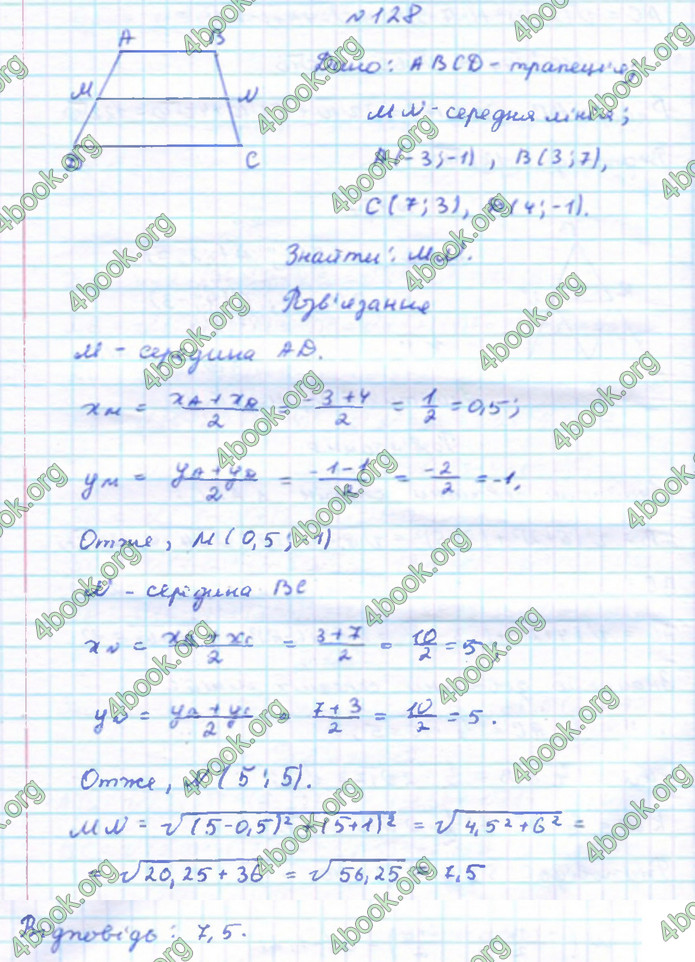 №128
A B
Дано: ABCD - трапеція,
M N
MN - середня лінія;
A(-3;-1), B(3;7),
D C
C(7;3), D(4;-1).
Знайти: MN.
Розв'язання
M - середина AD.
xM = (xA + xD)/2 = (-3+4)/2 = 1/2 = 0,5;
yM = (yA + yD)/2 = (-1-1)/2 = -2/2 = -1.
Отже, M(0,5; -1)
N - середина BC
xN = (xB + xC)/2 = (3+7)/2 = 10/2 = 5
yN = (yB + yC)/2 = (7+3)/2 = 10/2 = 5.
Отже, N(5;5).
MN = √((5-0,5)² + (5+1)²) = √(4,5²+6²) =
= √(20,25+36) = √56,25 = 7,5
Відповідь: 7,5.
4book.org